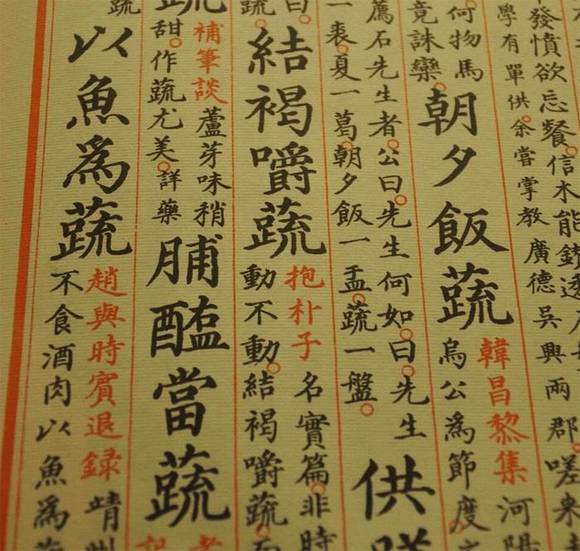 發憤欲忘餐○信水能
學有單供○余嘗掌教廣德吳興兩郡○嗟來
何物馬
竟誅欒○
朝夕飯蔬
韓昌黎集河陽
烏公為節度○
薦石先生者○公曰○先生何如○曰○先生
一裘○夏一葛○朝夕飯一盂○蔬一盤○
供
曰○
蔬○
結褐嚼蔬
抱朴子名實篇○非時
動不動○結褐嚼蔬○
補筆談蘆芽味稍
甜○作蔬尤美○詳藥
脯醢當蔬
蔬
以魚爲蔬
趙與時賓退録靖州
不食酒肉以魚爲